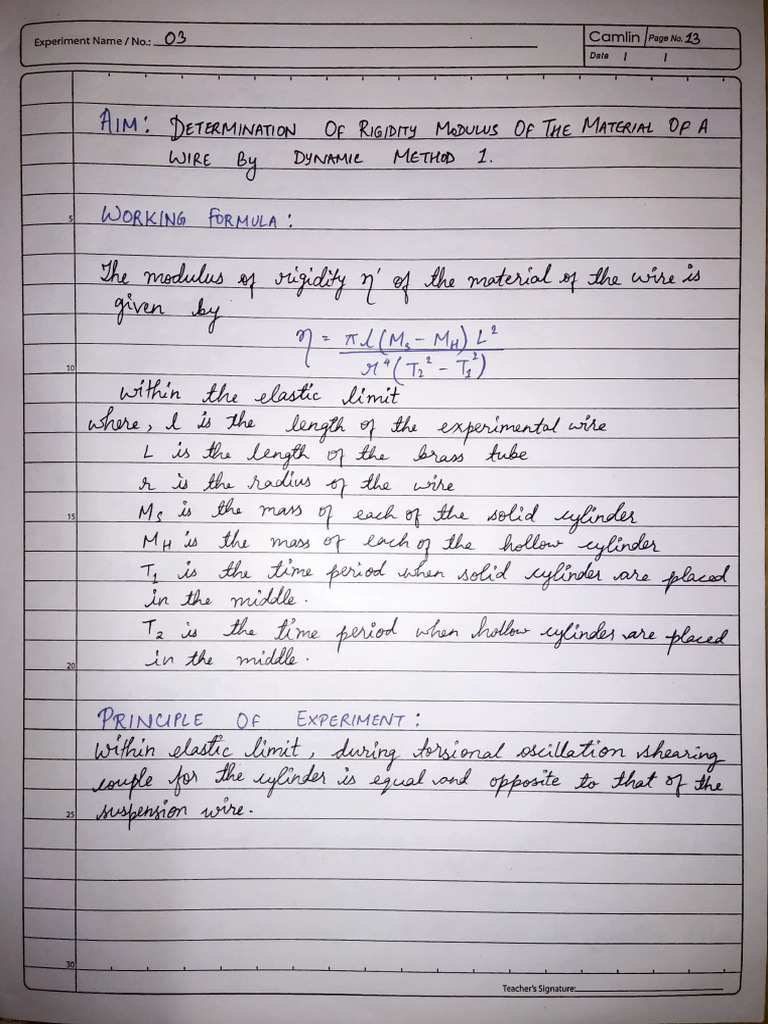 Experiment Name / No.: 03
Camlin Page No. 13
Date / /
AIM: DETERMINATION OF RIGIDITY MODULUS OF THE MATERIAL OF A
WIRE By DYNAMIC METHOD 1.
5
WORKING FORMULA:
The modulus of rigidity η' of the material of the wire is
given by
η = πl(Ms - MH) L² / r⁴(T₂² - T₁²)
10
within the elastic limit
where, l is the length of the experimental wire
L is the length of the brass tube
r is the radius of the wire
15
Ms is the mass of each of the solid cylinder
MH is the mass of each of the hollow cylinder
T₁ is the time period when solid cylinder are placed
in the middle.
T₂ is the time period when hollow cylinder are placed
20
in the middle.
PRINCIPLE OF EXPERIMENT:
Within elastic limit, during torsional oscillation shearing
couple for the cylinder is equal and opposite to that of the
25
suspension wire.
30
Teacher's Signature: